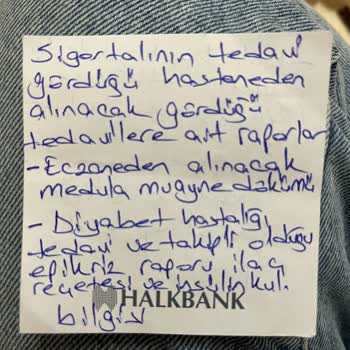 Sigortalının tedavi
gördüğü hastaneden
alınacak gördüğü
tedavilere ait raporlar
- Eczaneden alınacak
medula muayne dökümü
- Diyabet hastalığı
tedavi ve takipli olduğu
epikriz raporu ilaç
reçetesi ve insilin kul.
HALKBANK
bilgisi